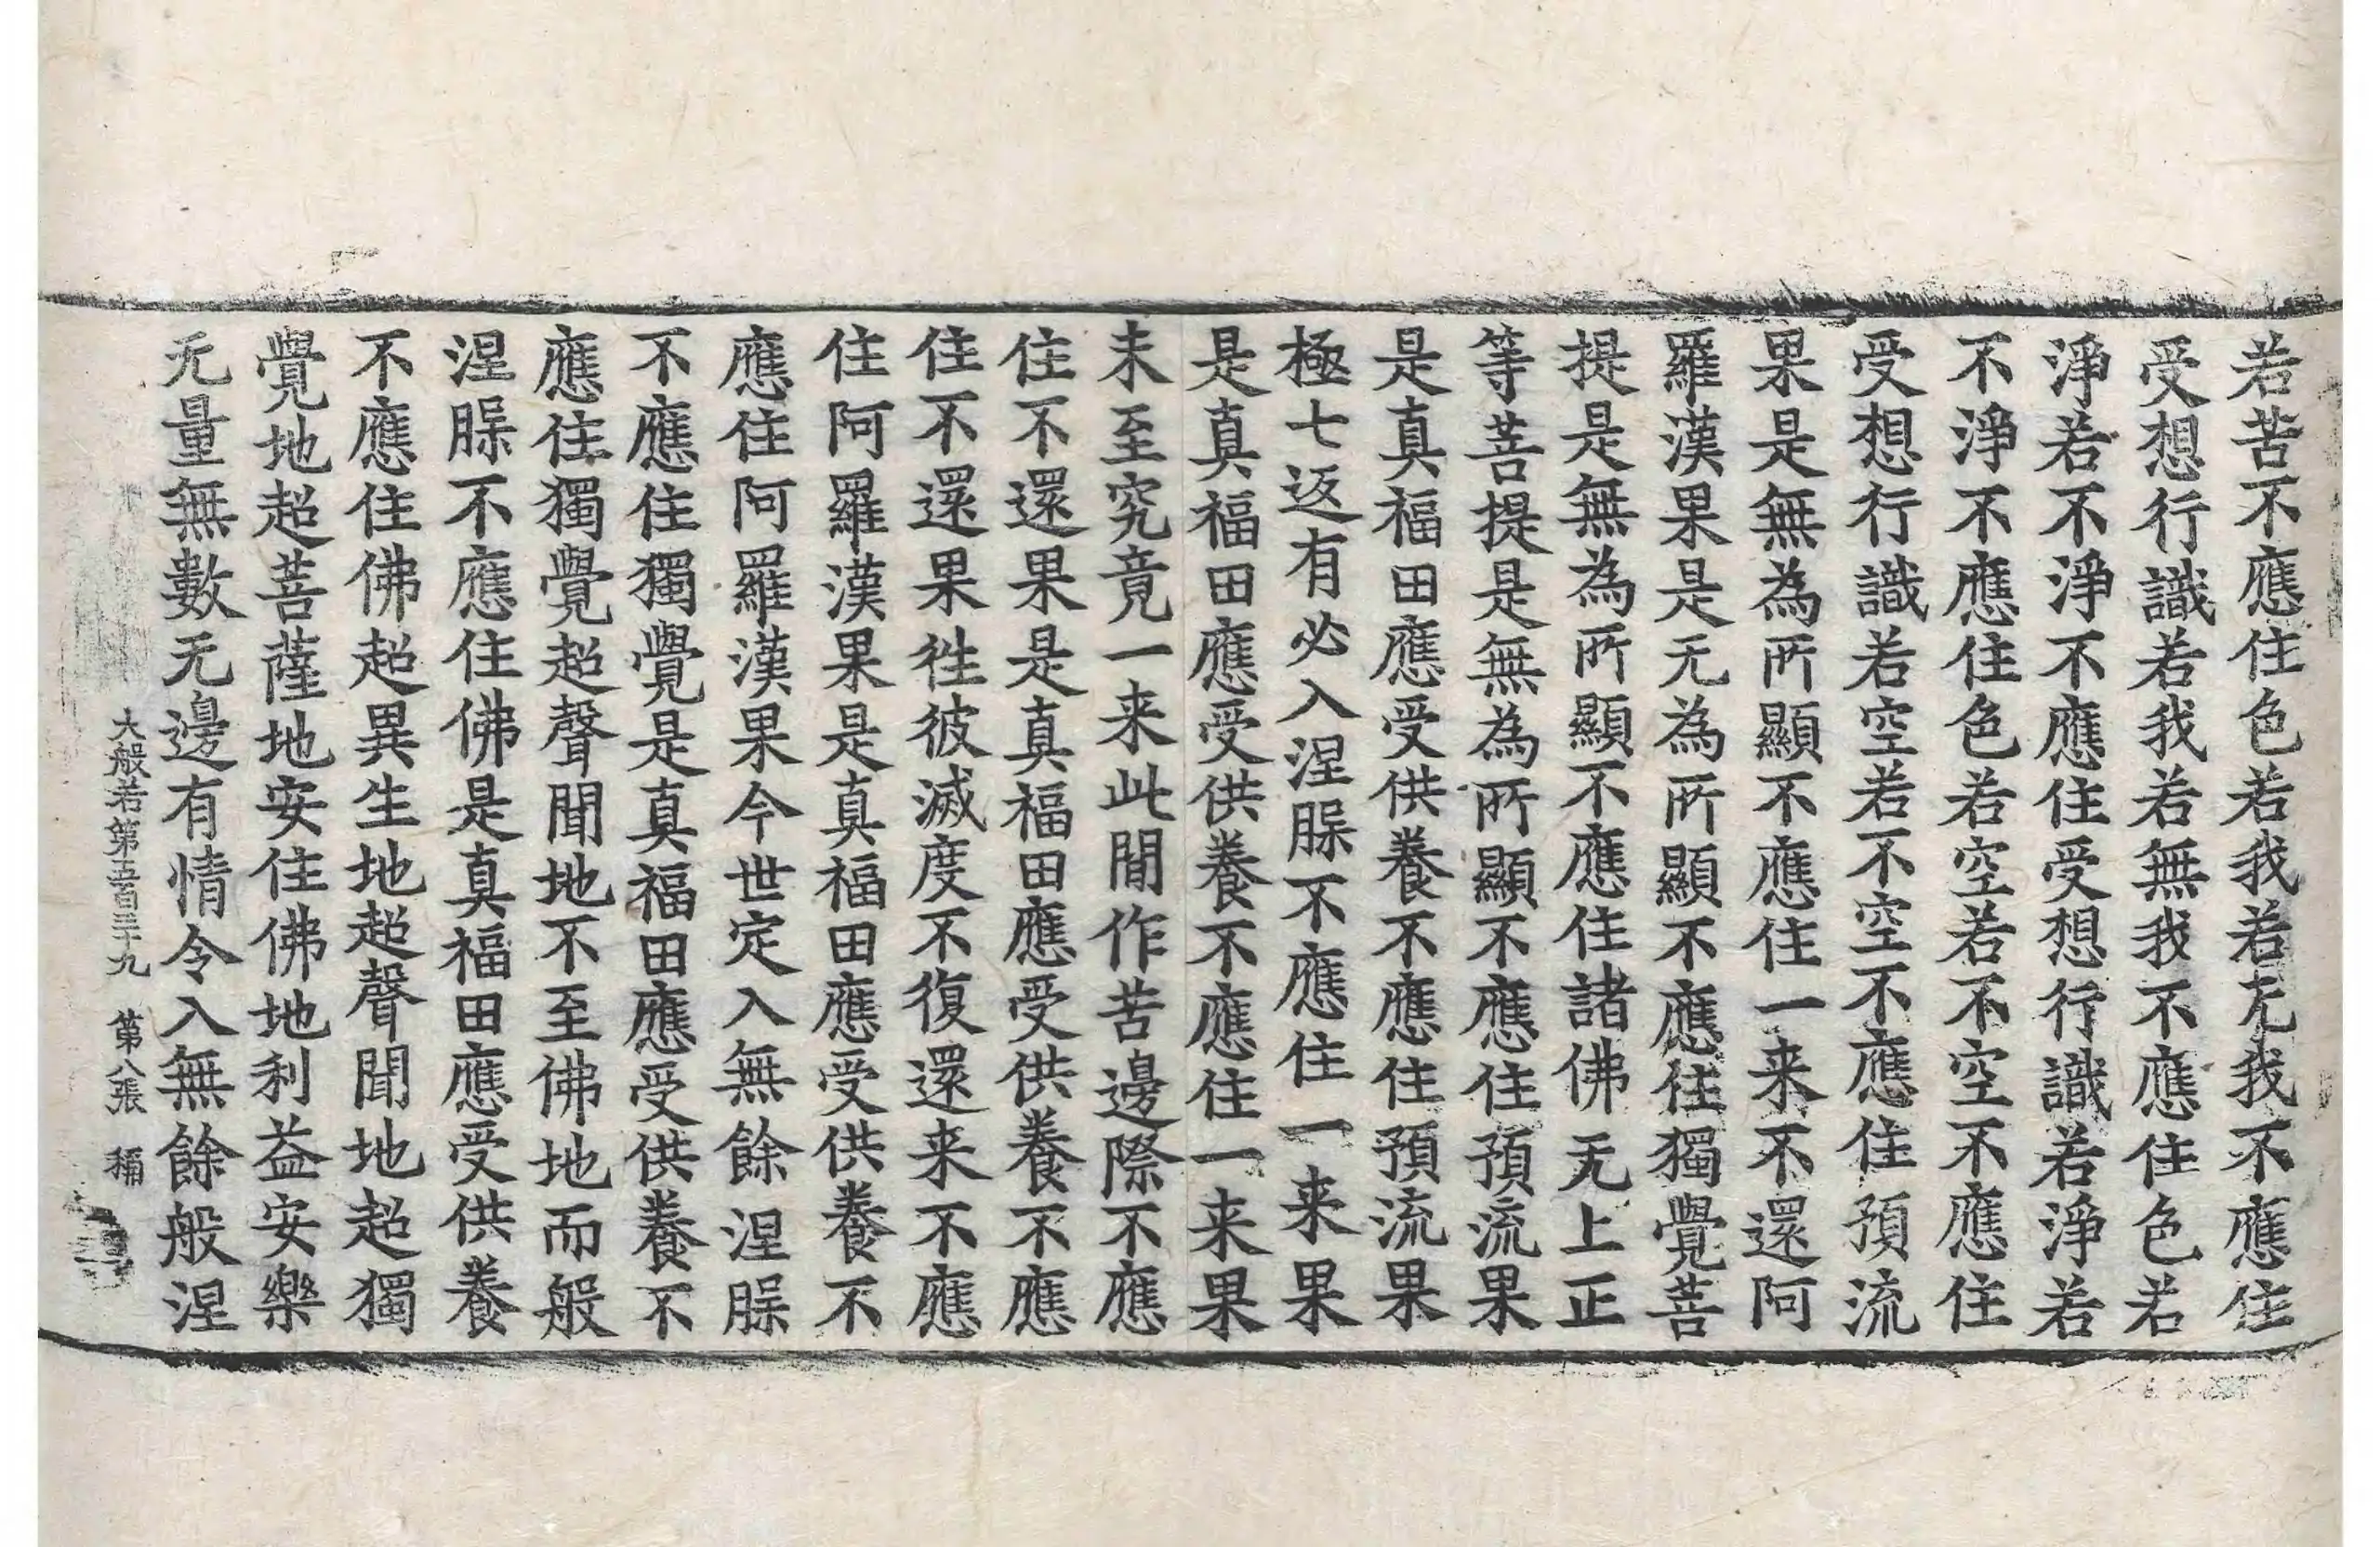 若苦不應住色若我若无我不應住
受想行識若我若無我不應住色若
淨若不淨不應住受想行識若淨若
不淨不應住色若空若不空不應住
受想行識若空若不空不應住預流
果是無為所顯不應住一来不還阿
羅漢果是无為所顯不應住獨覺菩
提是無為所顯不應住諸佛无上正
等菩提是無為所顯不應住預流果
是真福田應受供養不應住預流果
極七返有必入涅槃不應住一来果
是真福田應受供養不應住一来果
未至究竟一来此閒作苦邊際不應
住不還果是真福田應受供養不應
住不還果往彼滅度不復還来不應
住阿羅漢果是真福田應受供養不
應住阿羅漢果今世定入無餘涅槃
不應住獨覺是真福田應受供養不
應住獨覺超聲聞地不至佛地而般
涅槃不應住佛是真福田應受供養
不應住佛超異生地超聲聞地超獨
覺地超菩薩地安住佛地利益安樂
无量無數无邊有情令入無餘般涅
大般若第五百三十九 第八張 稱